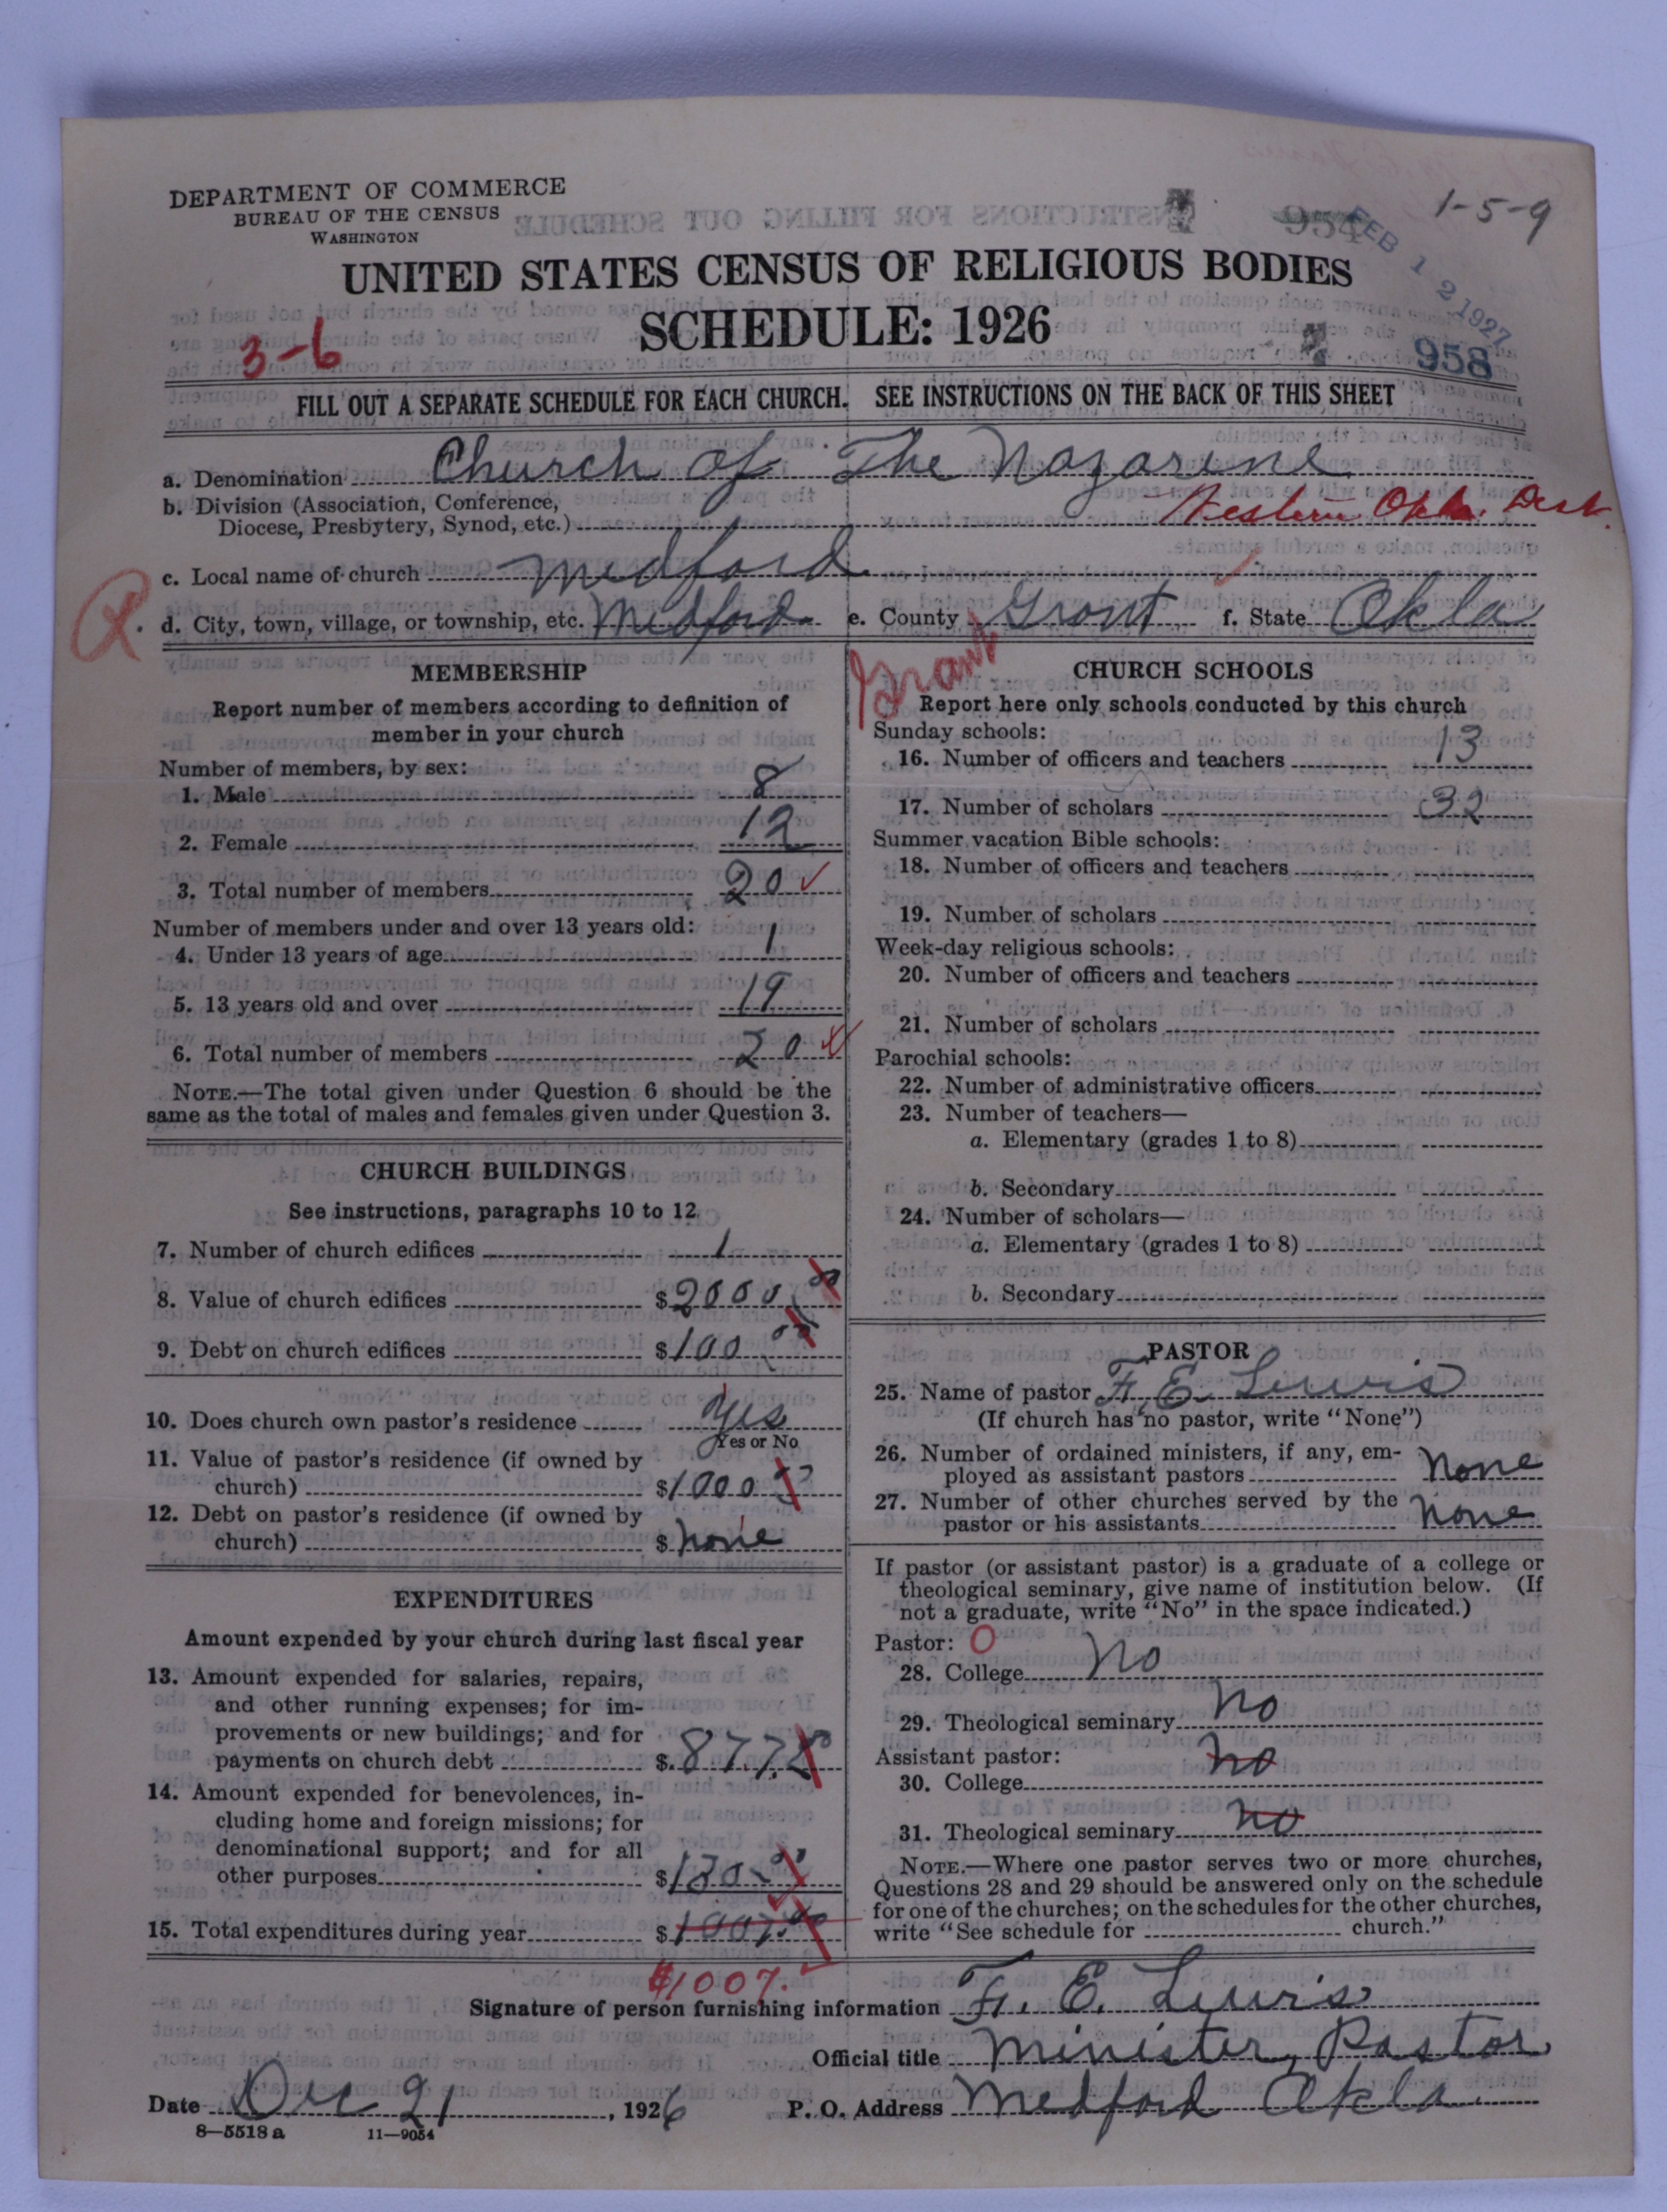 DEPARTMENT OF COMMERCE
BUREAU OF THE CENSUS
WASHINGTON
1-5-9
954
FEB 12 1927
UNITED STATES CENSUS OF RELIGIOUS BODIES
SCHEDULE: 1926
3-6
958
FILL OUT A SEPARATE SCHEDULE FOR EACH CHURCH. SEE INSTRUCTIONS ON THE BACK OF THIS SHEET
a. Denomination Church of The Nazarine
b. Division (Association, Conference,
Diocese, Presbytery, Synod, etc.) Western Okla. Dist.
c. Local name of church Medford
d. City, town, village, or township, etc. Medford e. County Grant f. State Okla
Grant
MEMBERSHIP
Report number of members according to definition of
member in your church
Number of members, by sex:
1. Male 8
2. Female 12
3. Total number of members 20
Number of members under and over 13 years old:
4. Under 13 years of age 1
5. 13 years old and over 19
6. Total number of members 20
NOTE.—The total given under Question 6 should be the
same as the total of males and females given under Question 3.
CHURCH BUILDINGS
See instructions, paragraphs 10 to 12
7. Number of church edifices 1
8. Value of church edifices $2000 00
9. Debt on church edifices $100 00
10. Does church own pastor's residence Yes
Yes or No
11. Value of pastor's residence (if owned by
church) $1000
12. Debt on pastor's residence (if owned by
church) $ none
EXPENDITURES
Amount expended by your church during last fiscal year
13. Amount expended for salaries, repairs,
and other running expenses; for im-
provements or new buildings; and for
payments on church debt $877.
14. Amount expended for benevolences, in-
cluding home and foreign missions; for
denominational support; and for all
other purposes $130
15. Total expenditures during year $1007.00
$1007.
CHURCH SCHOOLS
Report here only schools conducted by this church
Sunday schools:
16. Number of officers and teachers 13
17. Number of scholars 32
Summer vacation Bible schools:
18. Number of officers and teachers
19. Number of scholars
Week-day religious schools:
20. Number of officers and teachers
21. Number of scholars
Parochial schools:
22. Number of administrative officers
23. Number of teachers—
a. Elementary (grades 1 to 8)
b. Secondary
24. Number of scholars—
a. Elementary (grades 1 to 8)
b. Secondary
PASTOR
25. Name of pastor F. E. Lewis
(If church has no pastor, write "None")
26. Number of ordained ministers, if any, em-
ployed as assistant pastors None
27. Number of other churches served by the
pastor or his assistants None
If pastor (or assistant pastor) is a graduate of a college or
theological seminary, give name of institution below. (If
not a graduate, write "No" in the space indicated.)
Pastor: O
28. College No
29. Theological seminary No
Assistant pastor:
30. College No
31. Theological seminary No
NOTE.—Where one pastor serves two or more churches,
Questions 28 and 29 should be answered only on the schedule
for one of the churches; on the schedules for the other churches,
write "See schedule for church."
Signature of person furnishing information F. E. Lewis
Official title Minister, Pastor
Date Dec 21, 1926 P. O. Address Medford Okla
8—5518 a 11—9054